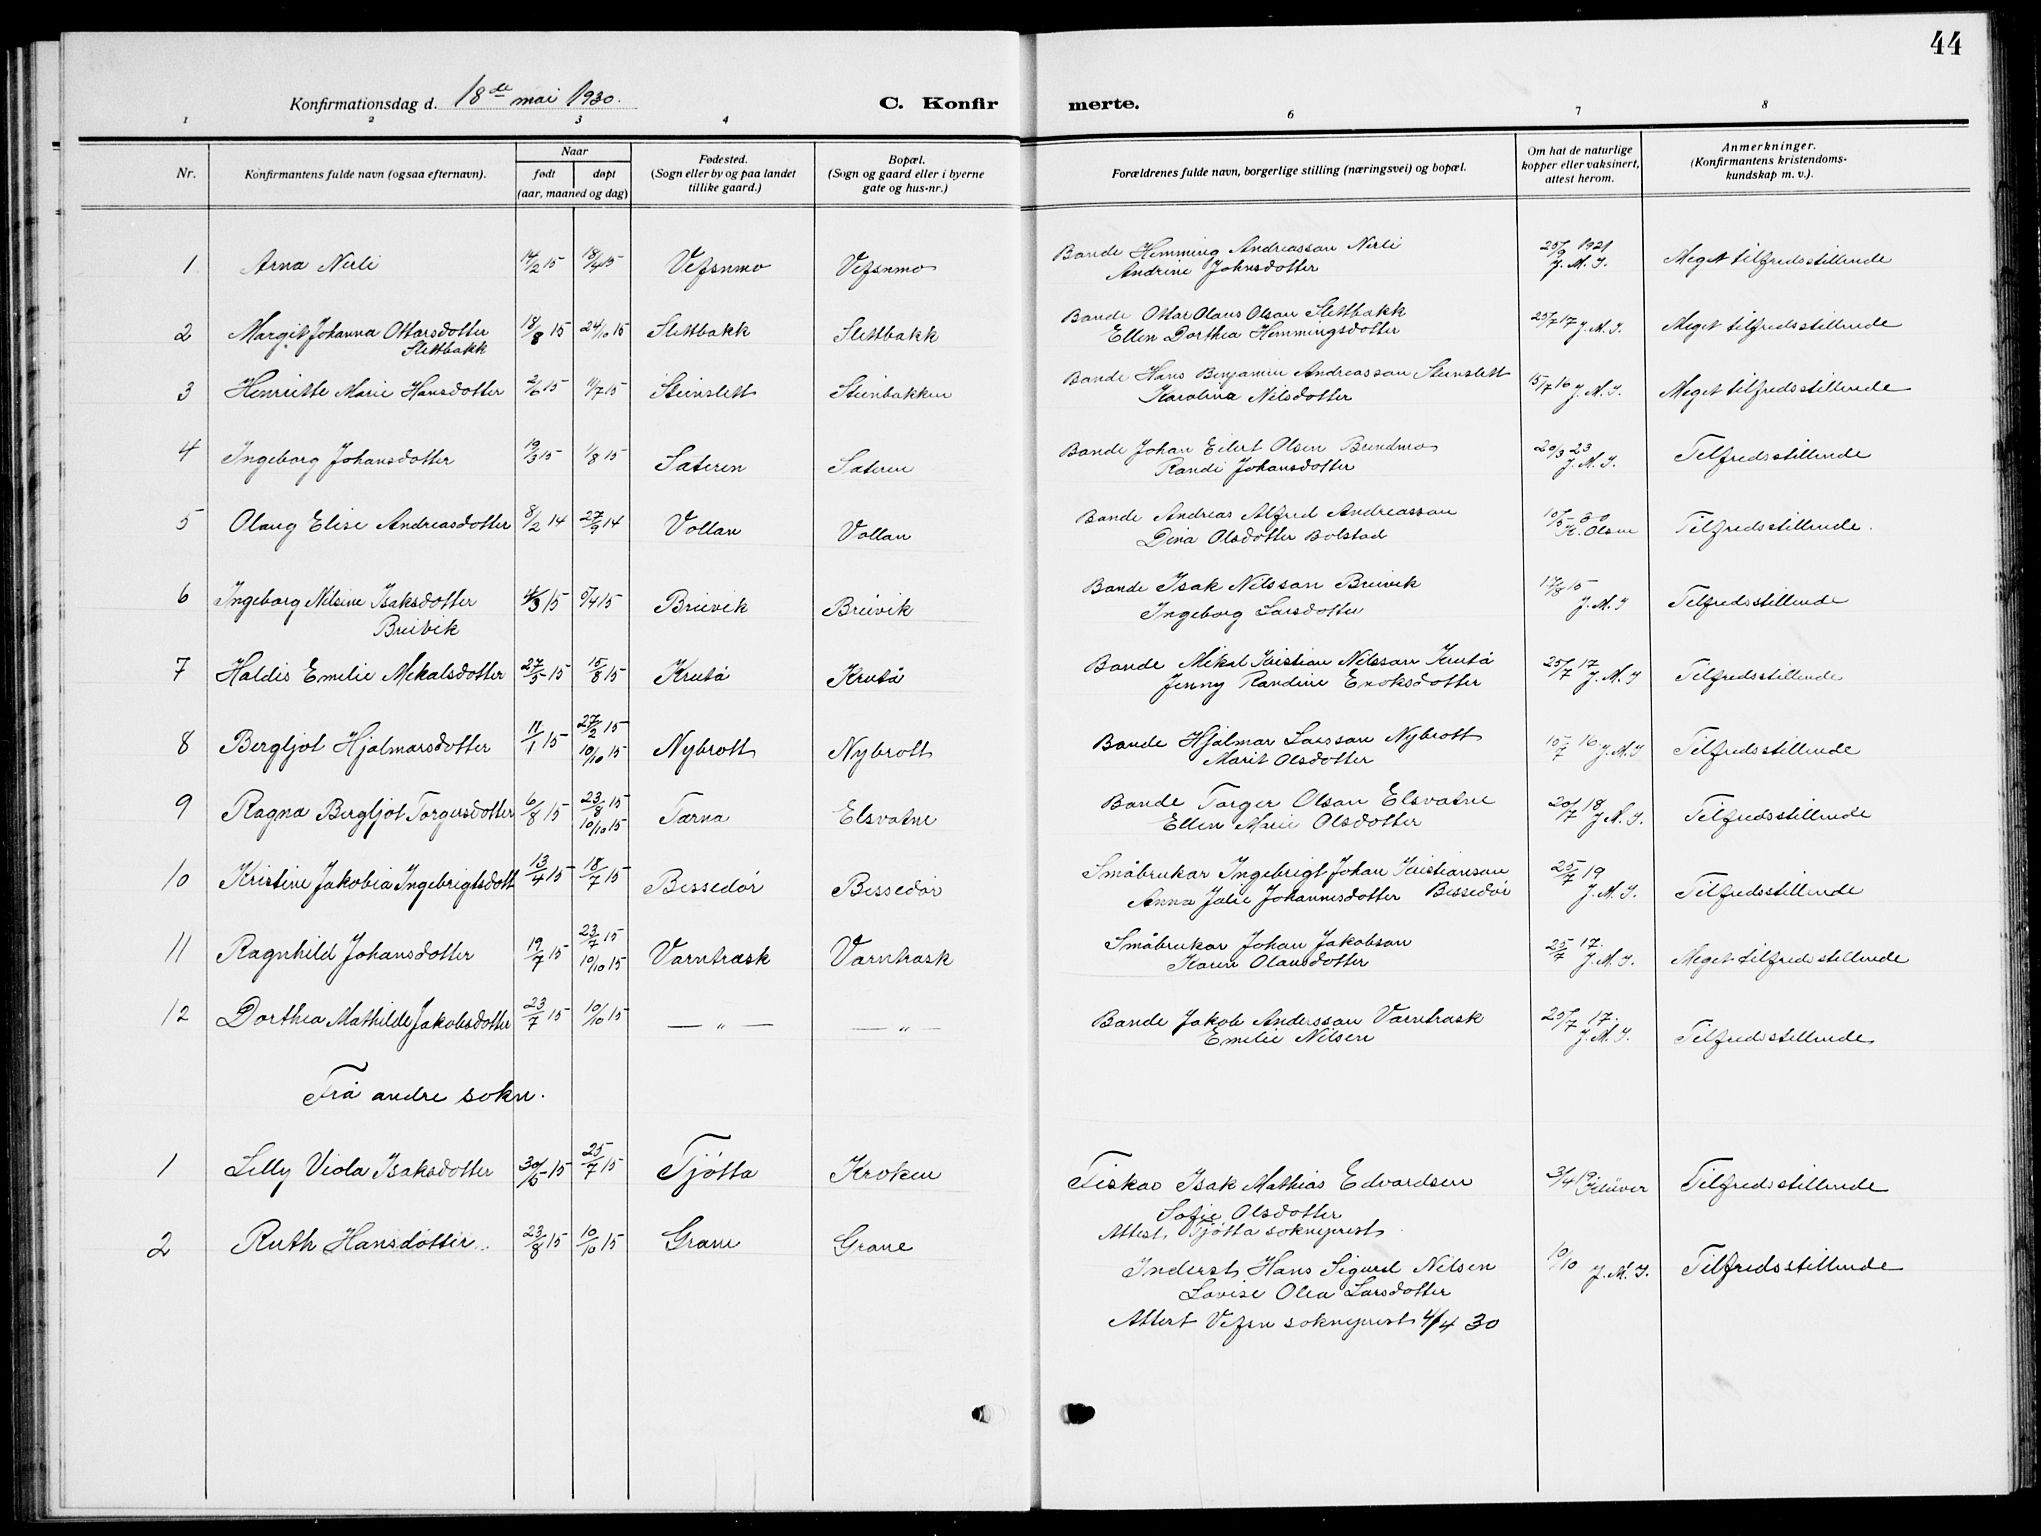 44
Konfirmationsdag d. 18de mai 1930. C. Konfir merte.
1 2 3 4 6 7 8
Nr. Konfirmantens fulde navn (ogsaa efternavn). Naar født døpt (aar, maaned og dag) Fødested. (Sogn eller by og paa landet tillike gaard.) Bopæl. (Sogn og gaard eller i byerne gate og hus-nr.) Forældrenes fulde navn, borgerlige stilling (næringsvei) og bopæl. Om hat de naturlige kopper eller vaksinert, attest herom. Anmerkninger. (Konfirmantens kristendoms- kundskap m. v.).
1 Arna Nerli 14/2 15 18/4 15 Vefsnmo Vefsnmo Bonde Hemming Andreassan Nerli 25/9 1921 Meget tilfredsstillende
Andrine Johnsdotter J. M. I.
2 Margit Johanna Ottarsdotter 18/8 15 24/10 15 Slettbakk Slettbakk Bonde Ottar Olaus Olsan Slettbakk 25/7 17 J. M. I. Meget tilfredsstillende
Slettbakk Ellen Dorthea Hemmingsdotter
3 Henriette Marie Hansdotter 2/6 15 11/7 15 Steinslett Steinbakken Bonde Hans Benjamin Andreassan Steinslett 15/7 16 J. M. I. Meget tilfredsstillende
Karolina Nilsdotter
4 Ingeborg Johansdotter 19/3 15 1/8 15 Sæteren Sæteren Bonde Johan Eilert Olsen Brendmo 20/3 23 Tilfredsstillende
Randi Johansdotter J. M. I.
5 Olaug Elise Andreasdotter 8/2 14 27/9 14 Vollan Vollan Bonde Andreas Alfred Andreassan 10/5 30 Tilfredsstillende.
Dina Olsdotter Bolstad K. Olsen
6 Ingeborg Nilsine Isaksdotter 4/3 15 5/4 15 Breivik Breivik Bonde Isak Nilssan Breivik 17/8 15 Tilfredsstillende
Breivik Ingeborg Larsdotter J. M. I
7 Haldis Emelie Mekalsdotter 27/5 15 15/8 15 Krutå Krutå Bonde Mikal Kristian Nilssan Krutå 25/7 17 Tilfredsstillende
Jenny Randine Enoksdotter J. M. I
8 Bergljot Hjalmarsdotter 11/1 15 27/2 15 10/10 15 Nybrott Nybrott Bonde Hjalmar Larssan Nybrott 15/7 16 J. M. I Tilfredsstillende
Marit Olsdotter
9 Ragna Bergljot Torgersdotter 6/8 15 23/8 15 10/10 15 Tærna Elsvatne Bonde Torger Olsan Elsvatne 20/7 18 Tilfredsstillende
Ellen Marie Olsdotter J. M. I.
10 Kristine Jakobia Ingebrigtsdott 13/4 15 18/7 15 Bessedør Bessedør Småbrukar Ingebrigt Johan Kristiansan 25/7 19 Tilfredsstillende
Anna Julie Johannesdotter Bessedør J. M. I.
11 Ragnhild Johansdotter 19/7 15 23/7 15 10/10 15 Varntræsk Varntræsk Småbrukar Johan Jakobsan 25/7 17. Meget tilfredsstillende
Karen Olausdotter J. M. I.
12 Dorthea Mathilde Jakobsdotter 23/7 15 10/10 15 — „ — — „ — Bonde Jakob Anderssan Varntræsk 25/7 17. Tilfredsstillende
Emilie Nilsen J. M. I.
Frå andre sokn.
1 Lilly Viola Isaksdotter 30/5 15 25/7 15 Tjøtta Kroken Fiskar Isak Mathias Edvardsen 3/4 19 Klüver Tilfredsstillende
Sofie Olsdotter
Attest Tjøtta sokneprest
2 Ruth Hansdotter. 23/8 15 10/10 15 Grane Grane
Inderst Hans Sigurd Nilsen 10/10 J. M. I. Tilfredsstillende
Lovise Olea Larsdotter
Attest Vefsn sokneprest 4/4 30